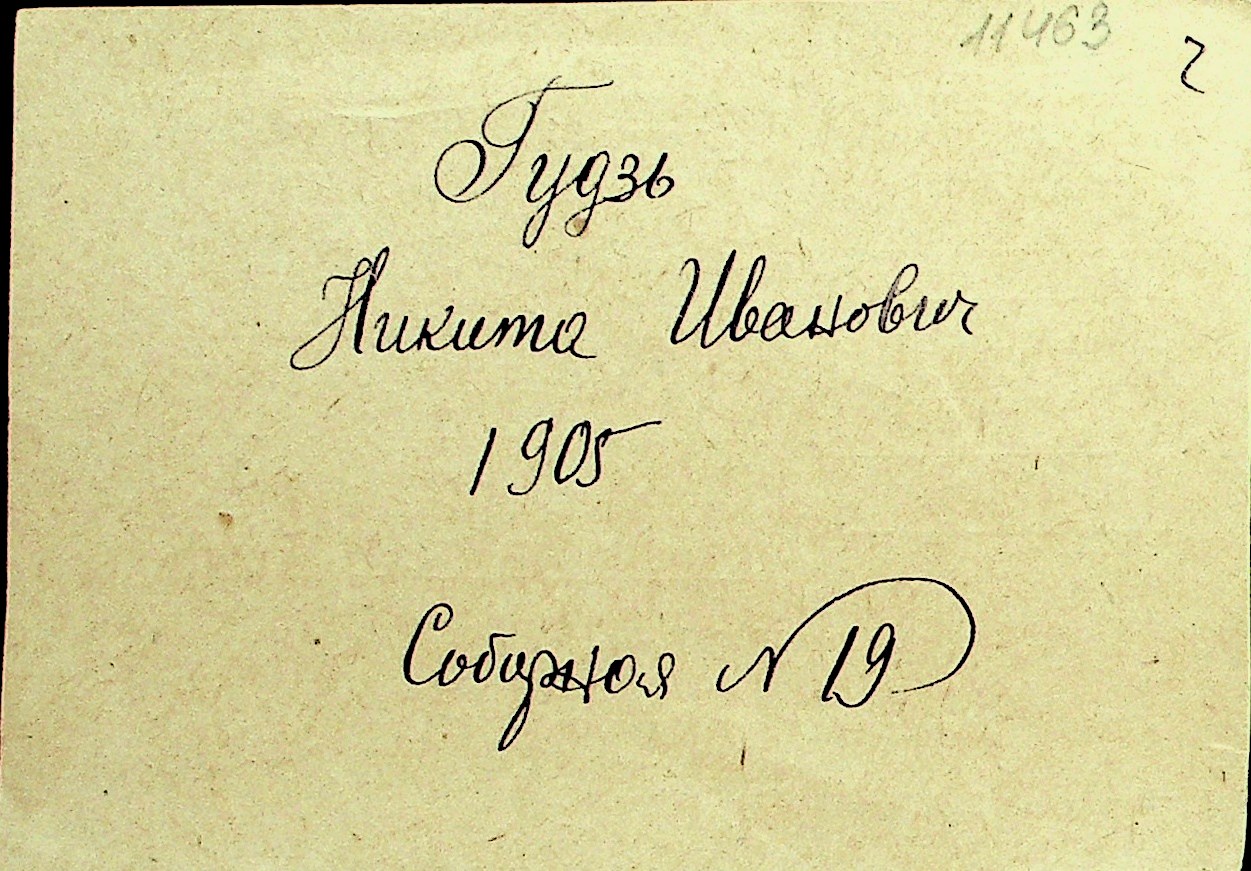 11463
Гудзь
Никита Иванович
1905
Соборная N 19